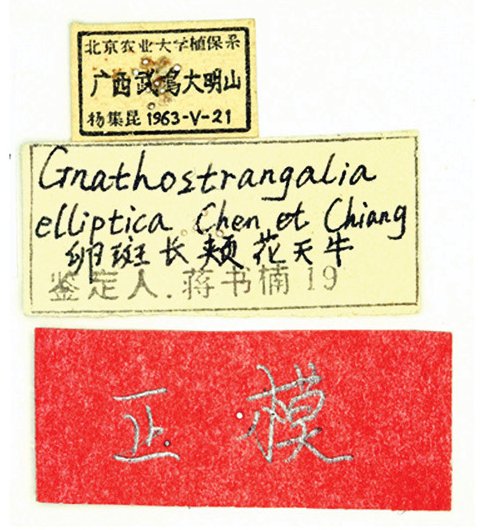 北京农业大学植保系
广西武鸣大明山
杨集昆 1963-V-21
Gnathostrangalia
elliptica Chen et Chiang
卵斑长颊花天牛
鉴定人.蒋书楠 19
正模